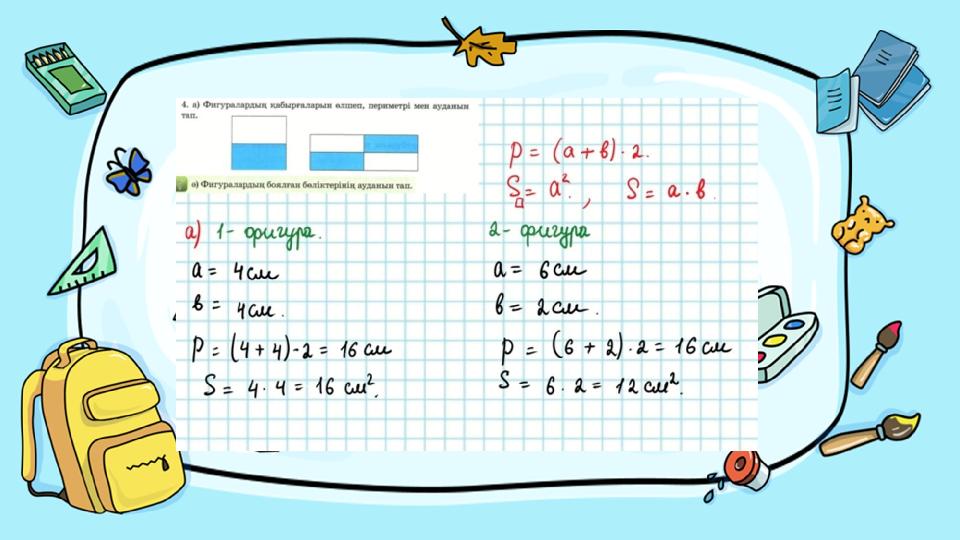 4. а) Фигуралардың қабырғаларын өлшеп, периметрі мен ауданын
тап.
ә) Фигуралардың боялған бөліктерінің ауданын тап.
P = (а + в) · 2.
S□ = а²., S = а · в.
а) 1- фигура.
а = 4 см
в = 4 см.
P = (4 + 4) · 2 = 16 см
S = 4 · 4 = 16 см².
2- фигура
а = 6 см
в = 2 см.
P = (6 + 2) · 2 = 16 см
S = 6 · 2 = 12 см².